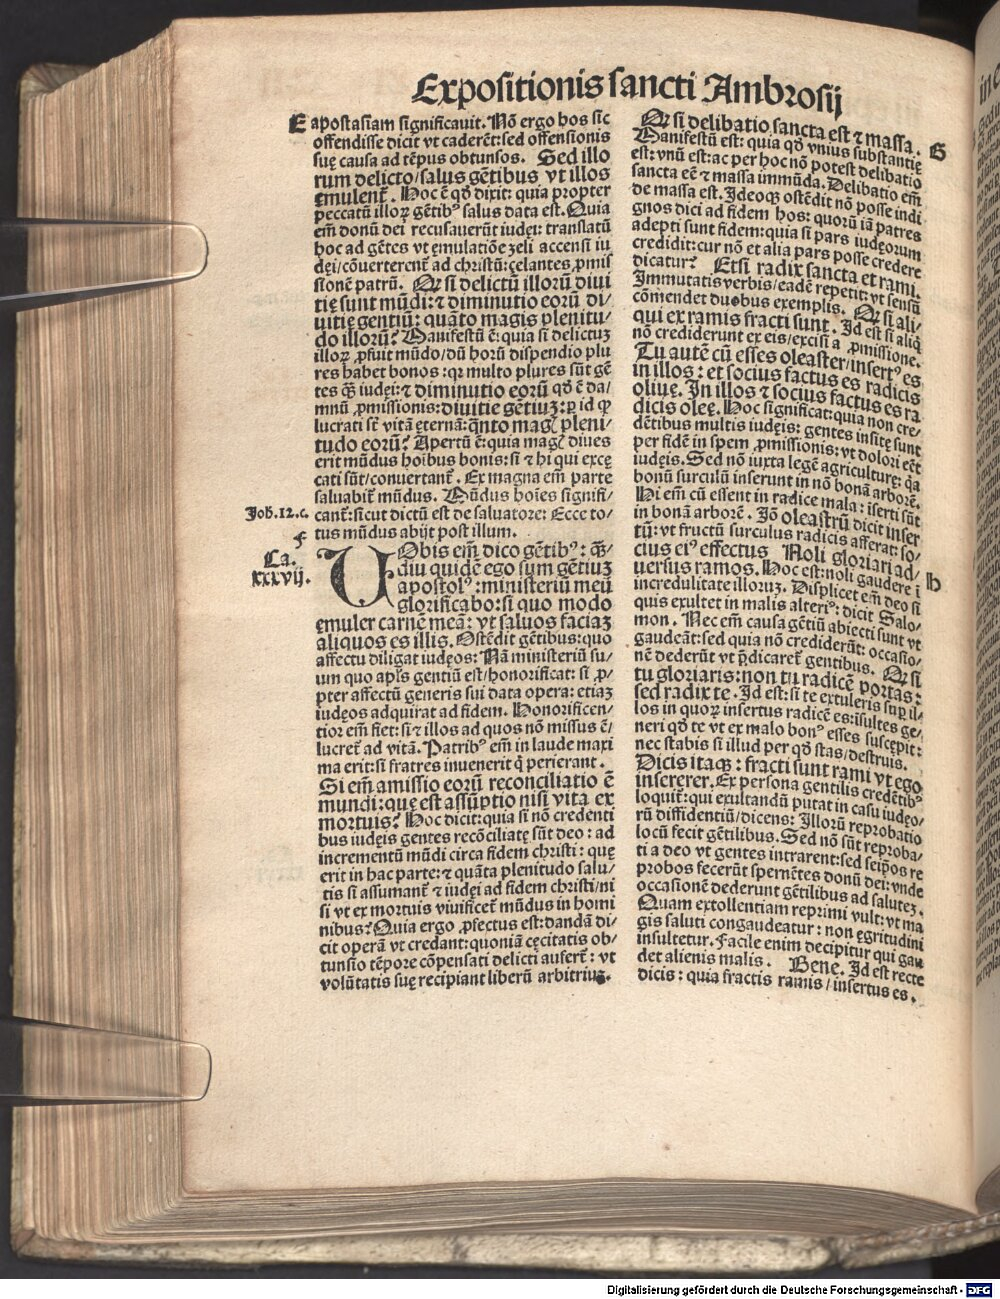 Expositionis sancti Ambrosij
E apostasiam significauit. Nõ ergo hos sic
offendisse dicit vt caderẽt: sed offensionis
suę causa ad tẽpus obtunsos. Sed illo
rum delicto/salus gẽtibus vt illos
ęmulent᷑. Hoc ẽ qď dixit: quia propter
peccatũ illoꝝ gẽtibꝰ salus data est. Quia
em̃ donũ dei recusauerũt iudęi: translatũ
hoc ad gẽtes vt ęmulatiõe zeli accensi iu
dęi/cõuerterent᷑ ad christũ: çelantes ꝓmis
sionẽ patrũ. Qꝫ si delictũ illorũ diui
tię sunt mũdi: ⁊ diminutio eorũ di/
uitię gentiũ: quãto magis plenitu/
do illorũ? Manifestũ ẽ: quia si delictuꝫ
illoꝝ ꝓfuit mũdo/dũ horũ dispendio plu
res habet bonos: qꝛ multo plures sũt gẽ
tes qꝫ̃ iudęi: ⁊ diminutio eorũ qď ẽ da/
mnũ ꝓmissionis: diuitię gẽtiuꝫ: ꝑ id ꝙ
lucrati sũt vitã eternã: qñto mag᷒ pleni/
tudo eorũ? Apertũ ẽ: quia mag᷒ diues
erit mũdus hoĩbus bonis: si ⁊ hi qui excę
cati sũt/conuertant᷑. Ex magna em̃ parte
saluabit᷑ mũdus. Mũdus hoĩes signifi/
Joh. 12. c. cant᷑: sicut dictũ est de saluatore: Ecce to/
tus mũdus abijt post illum.
F
Ca.
xxxvij.
UObis em̃ dico gẽtibꝰ: qꝫ̃/
diu quidẽ ego sum gẽtiuꝫ
apostolꝰ: ministeriũ meũ
glorificabo: si quo modo
ęmuler carnẽ meã: vt saluos faciaꝫ
aliquos es illis. Ostẽdit gẽtibus: quo
affectu diligat iudęos: Nã ministeriũ su/
um quo apl̃s gentiũ est/honorificat: si ꝓ/
pter affectũ generis sui data opera: etiaꝫ
iudęos adquirat ad fidem. Honorificen/
tior em̃ fiet: si ⁊ illos ad quos nõ missus ẽ/
lucret᷑ ad vitã. Patribꝰ em̃ in laude maxi
ma erit: si fratres inuenerit q̃ perierant.
Si em̃ amissio eorũ reconciliatio ẽ
mundi: quę est assũptio nisi vita ex
mortuis? Hoc dicit: quia si nõ credenti
bus iudęis gentes recõciliatę sũt deo: ad
incrementũ mũdi circa fidem christi: quę
erit in hac parte: ⁊ quãta plenitudo salu/
tis si assumant᷑ ⁊ iudęi ad fidem christi/ni
si vt ex mortuis viuificet᷑ mũdus in homi
nibus? Quia ergo ꝓfectus est: dandã di/
cit operã vt credant: quoniã cęcitatis ob/
tunsio tẽpore cõpensati delicti aufert᷑: vt
volũtatis suę recipiant liberũ arbitriuꝫ.
Qꝫ si delibatio sancta est ⁊ massa. G
Manifestũ est: quia qď vnius substantię
est: vnũ est: ac per hoc nõ potest delibatio
sancta eẽ ⁊ massa immũda. Delibatio em̃
de massa est. Ideoqꝫ ostẽdit nõ posse indi
gnos dici ad fidem hos: quorũ iã patres
adepti sunt fidem: quia si pars iudęorum
credidit: cur nõ et alia pars posse credere
dicatur? Etsi radix sancta et rami.
Immutatis verbis/eadẽ repetit: vt sensũ
cõmendet duobus exemplis. Qꝫ si ali/
qui ex ramis fracti sunt. Id est si aliq̃
nõ crediderunt ex eis/excisi a ꝓmissione.
Tu autẽ cũ esses oleaster/insertꝰ es
in illos: et socius factus es radicis
oliuę. In illos ⁊ socius factus es ra
dicis oleę. Hoc significat: quia non cre/
dẽtibus multis iudęis: gentes insitę sunt
per fidẽ in spem ꝓmissionis: vt dolori eẽt
iudęis. Sed nõ iuxta legẽ agriculturę: q̃a
bonũ surculũ inserunt in nõ bonã arborẽ.
Hi em̃ cũ essent in radice mala: iserti sũt
in bonã arborẽ. Jõ oleastrũ dicit inser
tũ: vt fructũ surculus radicis afferat: so/
cius eiꝰ effectus Noli gloriari ad/
uersus ramos. Hoc est: noli gaudere ĩ H
incredulitate illoruꝫ. Displicet em̃ deo si
quis exultet in malis alteriꝰ: dicit Salo/
mon. Nec em̃ causa gẽtiũ abiecti sunt vt
gaudeãt: sed quia nõ crediderũt: occasio/
nẽ dederũt vt p̃dicaret᷑ gentibus. Qꝫ si
tu gloriaris: non tu radicẽ portas:
sed radix te. Id est: si te extuleris suꝑ il/
los in quoꝝ insertus radicẽ es: ĩsultes ge/
neri qď te vt ex malo bonꝰ esses suscępit:
nec stabis si illud per qď stas/destruis.
Dicis itaqꝫ: fracti sunt rami vt ego
insererer. Ex persona gentilis credẽtibꝰ
loquit᷑: qui exultandũ putat in casu iudęo/
rũ diffidentiũ/dicens: Illorũ reprobatio
locũ fecit gẽtilibus. Sed nõ sũt reproba/
ti a deo vt gentes intrarent: sed seip̃os re
probos fecerũt spernẽtes donũ dei: vnde
occasionẽ dederunt gẽtilibus ad saluteꝫ.
Quam extollentiam reprimi vult: vt ma
gis saluti congaudeatur: non ęgritudini
insultetur. Facile enim decipitur qui gau
det alienis malis. Bene. Id est recte
dicis: quia fractis ramis/insertus es.
Digitalisierung gefördert durch die Deutsche Forschungsgemeinschaft - DFG